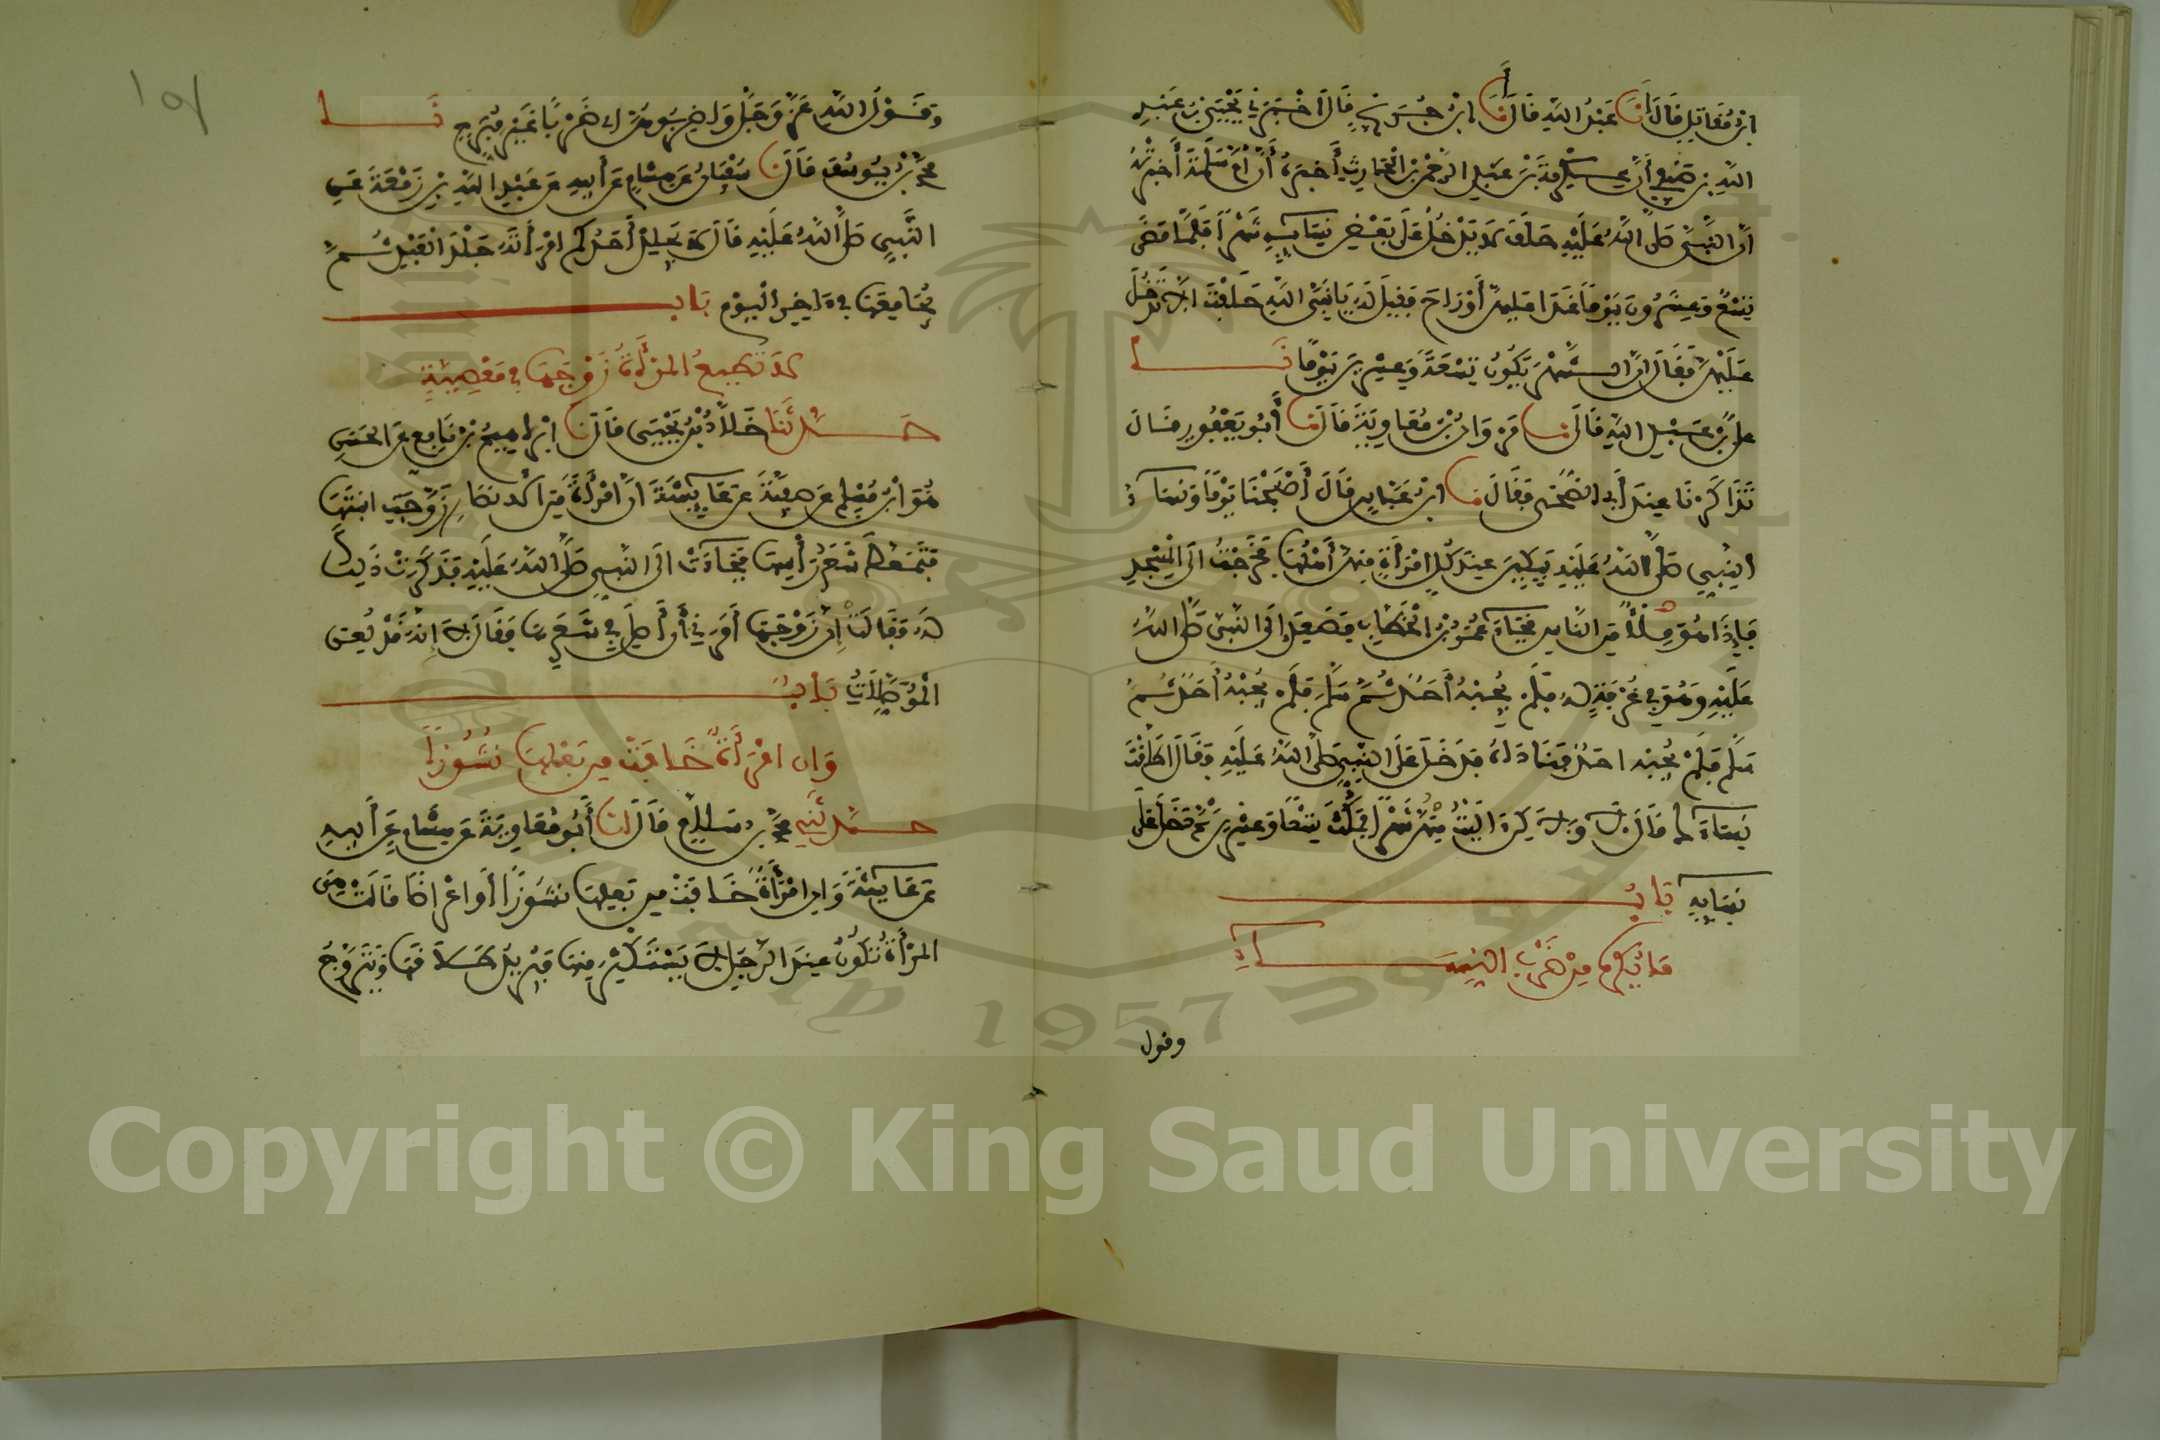 ابْنُ مُقَاتِلٍ قَالَ أَنَا عَبْدُ اللَّهِ قَالَ أَنَا ابْنُ جُرَيْجٍ قَالَ أَخْبَرَنِي يَحْيَى بْنُ عَبْدِ
اللَّهِ بْنِ صَيْفِيٍّ أَنَّ عِكْرِمَةَ بْنَ عَبْدِ الرَّحْمَنِ بْنِ الْحَارِثِ أَخْبَرَهُ أَنَّ أُمَّ سَلَمَةَ أَخْبَرَتْهُ
أَنَّ النَّبِيَّ صَلَّى اللَّهُ عَلَيْهِ حَلَفَ لَا يَدْخُلُ عَلَى بَعْضِ نِسَائِهِ شَهْرًا فَلَمَّا مَضَى
تِسْعٌ وَعِشْرُونَ يَوْمًا غَدَا عَلَيْهِنَّ أَوْ رَاحَ فَقِيلَ لَهُ يَا نَبِيَّ اللَّهِ حَلَفْتَ أَلَّا تَدْخُلَ
عَلَيْهِنَّ فَقَالَ إِنَّ الشَّهْرَ يَكُونُ تِسْعَةً وَعِشْرِينَ يَوْمًا نَا
عَلِيُّ بْنُ عَبْدِ اللَّهِ قَالَ نَا مَرْوَانُ بْنُ مُعَاوِيَةَ قَالَ نَا أَبُو يَعْفُورٍ قَالَ
تَذَاكَرْنَا عِنْدَ أَبِي الضُّحَى فَقَالَ نَا ابْنُ عَبَّاسٍ قَالَ أَصْبَحْنَا يَوْمًا وَنِسَاءُ
النَّبِيِّ صَلَّى اللَّهُ عَلَيْهِ يَبْكِينَ عِنْدَ كُلِّ امْرَأَةٍ مِنْهُنَّ أَهْلُهَا فَخَرَجْتُ إِلَى الْمَسْجِدِ
فَإِذَا هُوَ مَلْآنُ مِنَ النَّاسِ فَجَاءَ عُمَرُ بْنُ الْخَطَّابِ فَصَعِدَ إِلَى النَّبِيِّ صَلَّى اللَّهُ
عَلَيْهِ وَهُوَ فِي غُرْفَةٍ لَهُ فَسَلَّمَ فَلَمْ يُجِبْهُ أَحَدٌ ثُمَّ سَلَّمَ فَلَمْ يُجِبْهُ أَحَدٌ ثُمَّ
سَلَّمَ فَلَمْ يُجِبْهُ أَحَدٌ فَنَادَاهُ فَدَخَلَ عَلَى النَّبِيِّ صَلَّى اللَّهُ عَلَيْهِ فَقَالَ أَطَلَّقْتَ
نِسَاءَكَ قَالَ لَا وَلَكِنْ آلَيْتُ مِنْهُنَّ شَهْرًا فَمَكَثَ تِسْعًا وَعِشْرِينَ ثُمَّ دَخَلَ عَلَى
نِسَائِهِ بَابُ
مَا يُكْرَهُ مِنْ ضَرْبِ النِّسَاءِ
وقول
١٥٢
وَقَوْلُ اللَّهِ عَزَّ وَجَلَّ وَاضْرِبُوهُنَّ أَيْ ضَرْبًا غَيْرَ مُبَرِّحٍ نَا
مُحَمَّدُ بْنُ يُوسُفَ قَالَ نَا سُفْيَانُ عَنْ هِشَامٍ عَنْ أَبِيهِ عَنْ عَبْدِ اللَّهِ بْنِ زَمْعَةَ عَنِ
النَّبِيِّ صَلَّى اللَّهُ عَلَيْهِ قَالَ لَا يَجْلِدُ أَحَدُكُمُ امْرَأَتَهُ جَلْدَ الْعَبْدِ ثُمَّ
يُجَامِعُهَا فِي آخِرِ الْيَوْمِ بَابٌ
لَا تُطِيعُ الْمَرْأَةُ زَوْجَهَا فِي مَعْصِيَةٍ
حَدَّثَنَا خَلَّادُ بْنُ يَحْيَى قَالَ نَا إِبْرَاهِيمُ بْنُ نَافِعٍ عَنِ الْحَسَنِ
هُوَ ابْنُ مُسْلِمٍ عَنْ صَفِيَّةَ عَنْ عَائِشَةَ أَنَّ امْرَأَةً مِنَ الْأَنْصَارِ زَوَّجَتِ ابْنَتَهَا
فَتَمَعَّطَ شَعَرُ رَأْسِهَا فَجَاءَتْ إِلَى النَّبِيِّ صَلَّى اللَّهُ عَلَيْهِ فَذَكَرَتْ ذَلِكَ
لَهُ فَقَالَتْ إِنَّ زَوْجَهَا أَمَرَنِي أَنْ أَصِلَ فِي شَعَرِهَا فَقَالَ لَا إِنَّهُ قَدْ لُعِنَ
الْمُوصِلَاتُ بَابُ
وَإِنِ امْرَأَةٌ خَافَتْ مِنْ بَعْلِهَا نُشُوزًا
حَدَّثَنِي مُحَمَّدُ بْنُ سَلَامٍ قَالَ نَا أَبُو مُعَاوِيَةَ عَنْ هِشَامٍ عَنْ أَبِيهِ
عَنْ عَائِشَةَ وَإِنِ امْرَأَةٌ خَافَتْ مِنْ بَعْلِهَا نُشُوزًا أَوْ إِعْرَاضًا قَالَتْ هِيَ
الْمَرْأَةُ تَكُونُ عِنْدَ الرَّجُلِ لَا يَسْتَكْثِرُ مِنْهَا فَيُرِيدُ طَلَاقَهَا وَيَتَزَوَّجُ
Copyright © King Saud University
1957